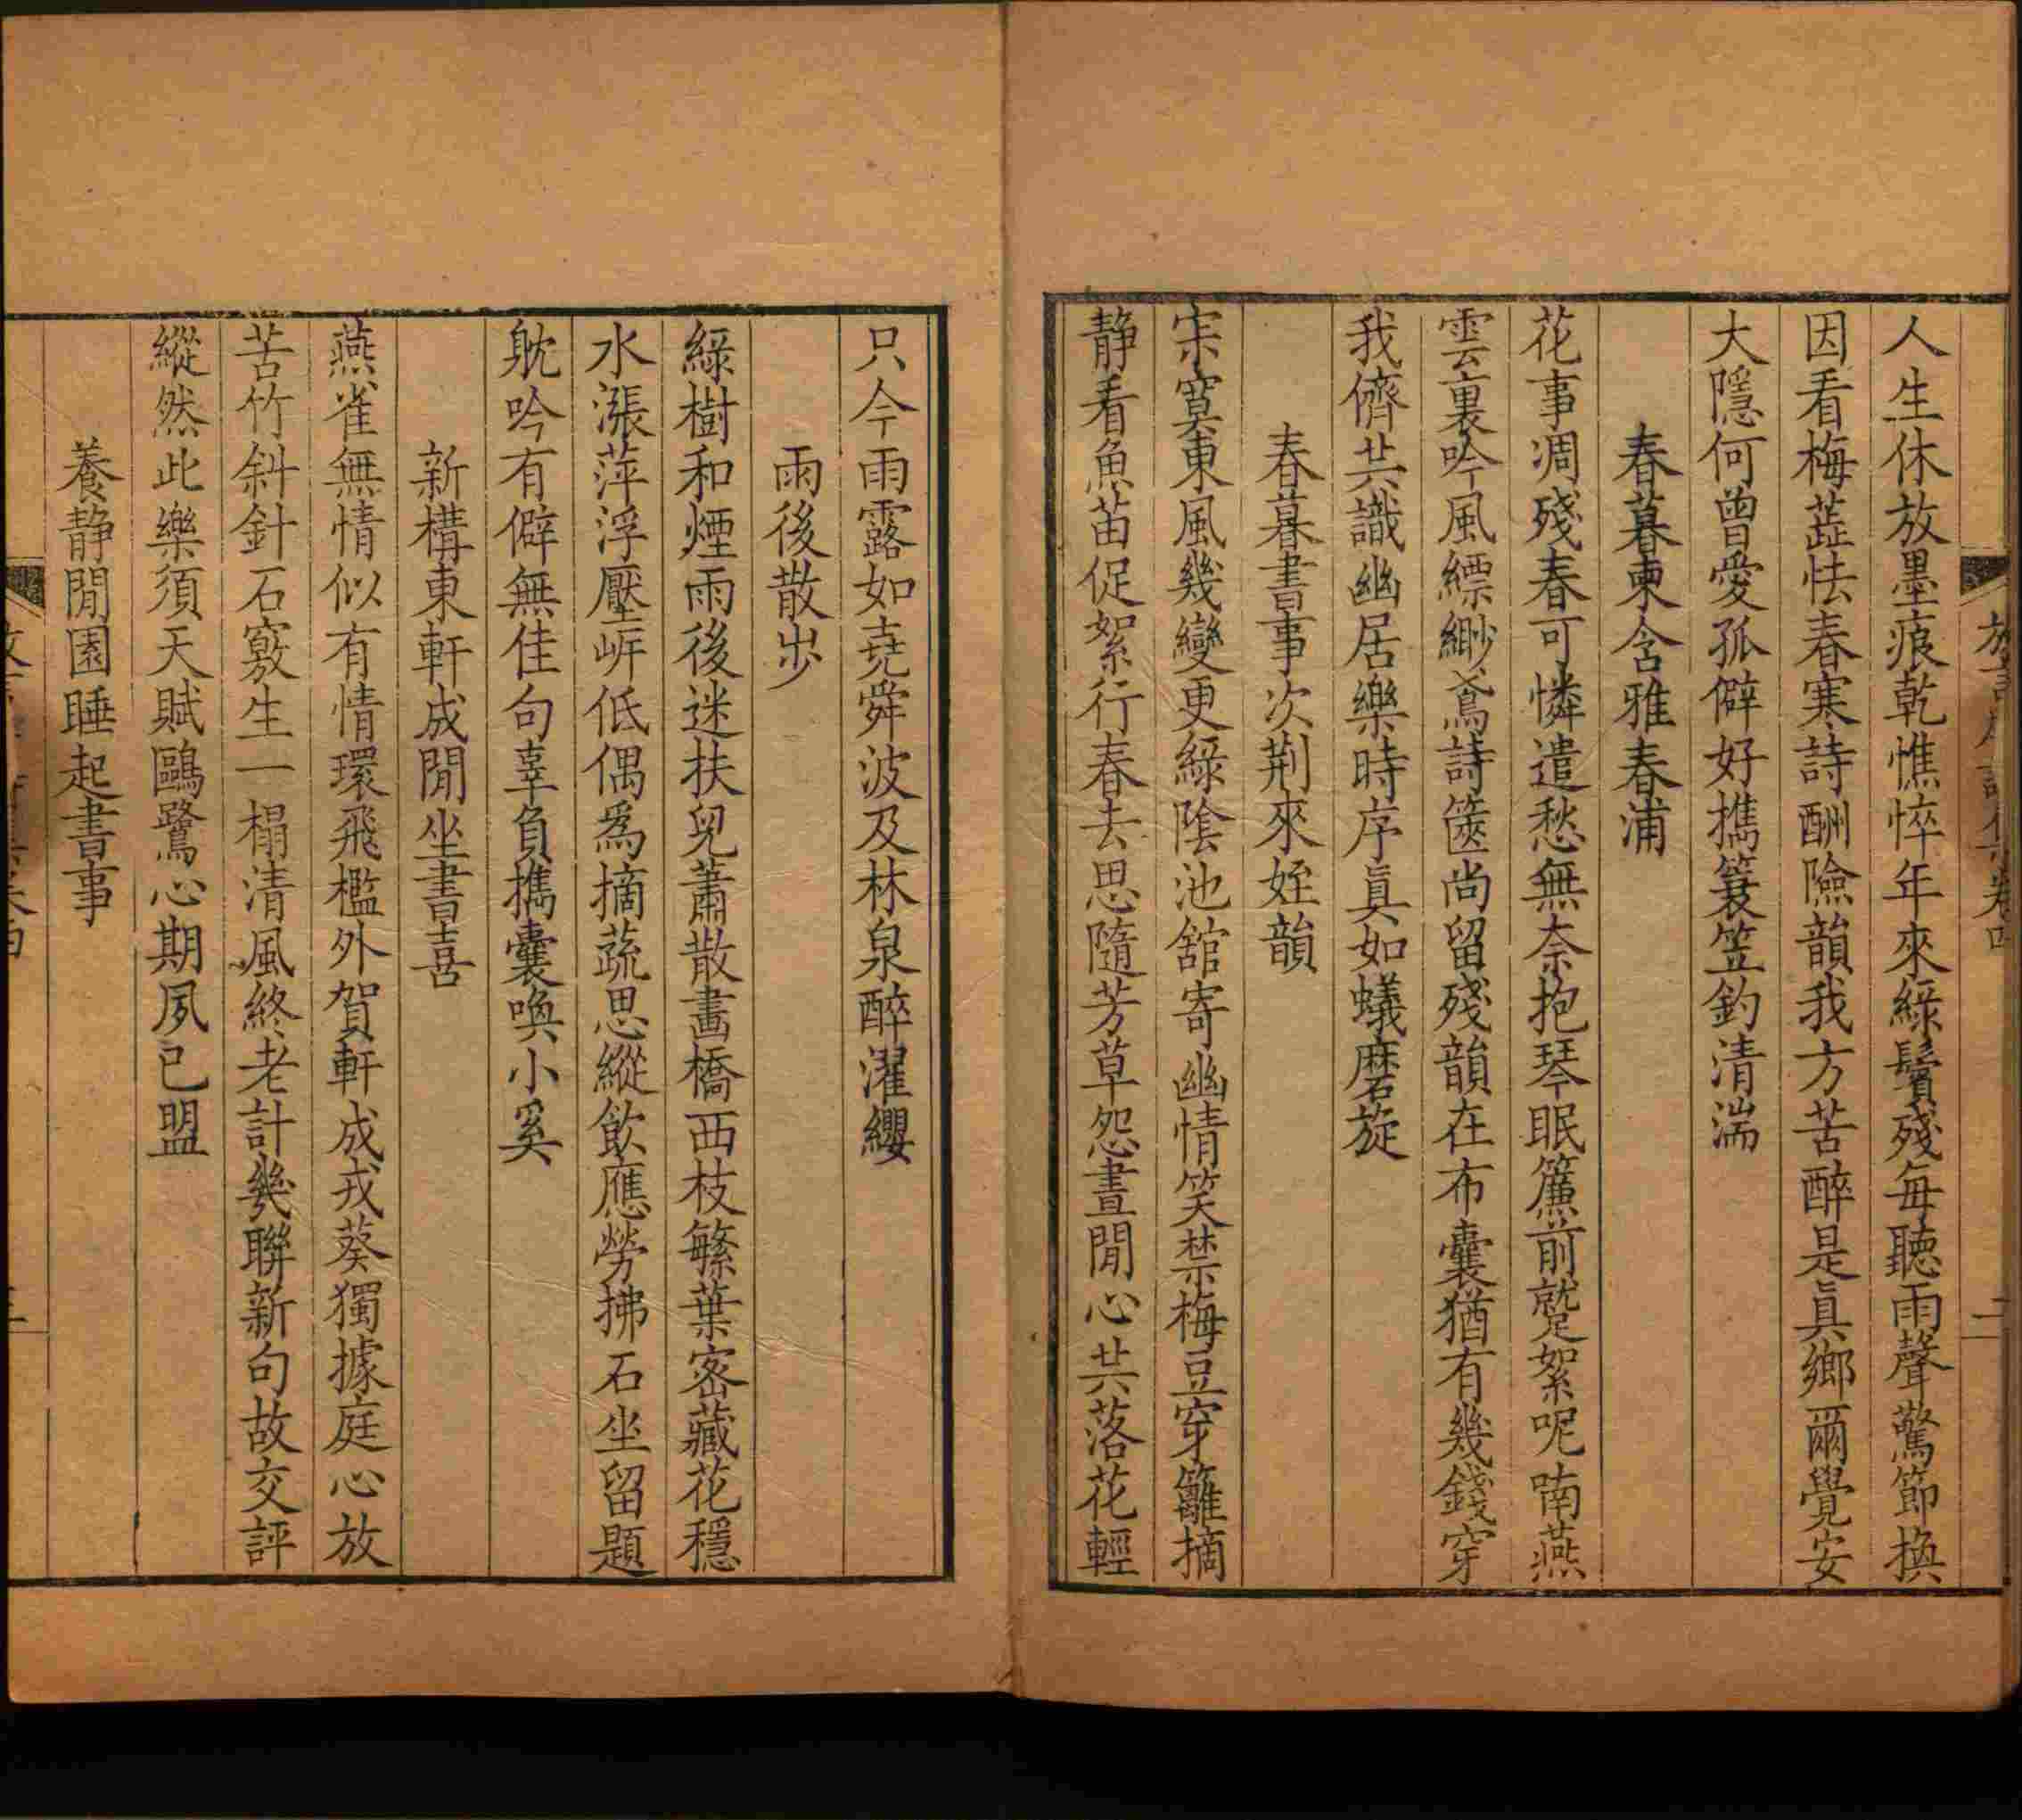 人生休放墨痕乾憔悴年來綠鬢殘每聽雨聲驚節換
因看梅蕋怯春寒詩酬險韻我方苦醉是眞鄉爾覺安
大隱何曾愛孤僻好擕簑笠釣清湍
春暮柬含雅春浦
花事凋殘春可憐遣愁無奈抱琴眠簾前蹴絮呢喃燕
雲裏吟風縹緲鳶詩篋尚留殘韻在布囊猶有幾錢穿
我儕共識幽居樂時序眞如蟻磨旋
春暮書事次荆來姪韻
宗寞東風幾變更綠陰池舘寄幽情笑禁梅豆穿籬摘
静看魚苗促絮行春去思隨芳草怨晝閒心共落花輕
只今雨露如堯舜波及林泉醉濯纓
雨後散步
綠樹和煙雨後迷扶兒蕭散畵橋西枝繁葉宻藏花穩
水漲萍浮壓岸低偶爲摘蔬思縱飲應勞拂石坐留題
躭吟有僻無佳句辜負擕囊喚小奚
新構東軒成閒坐書喜
燕雀無情似有情環飛檻外賀軒成戎葵獨據庭心放
苦竹斜針石竅生一榻清風終老計幾聯新句故交評
縱然此樂須天賦鷗鷺心期夙已盟
養静閒園睡起書事